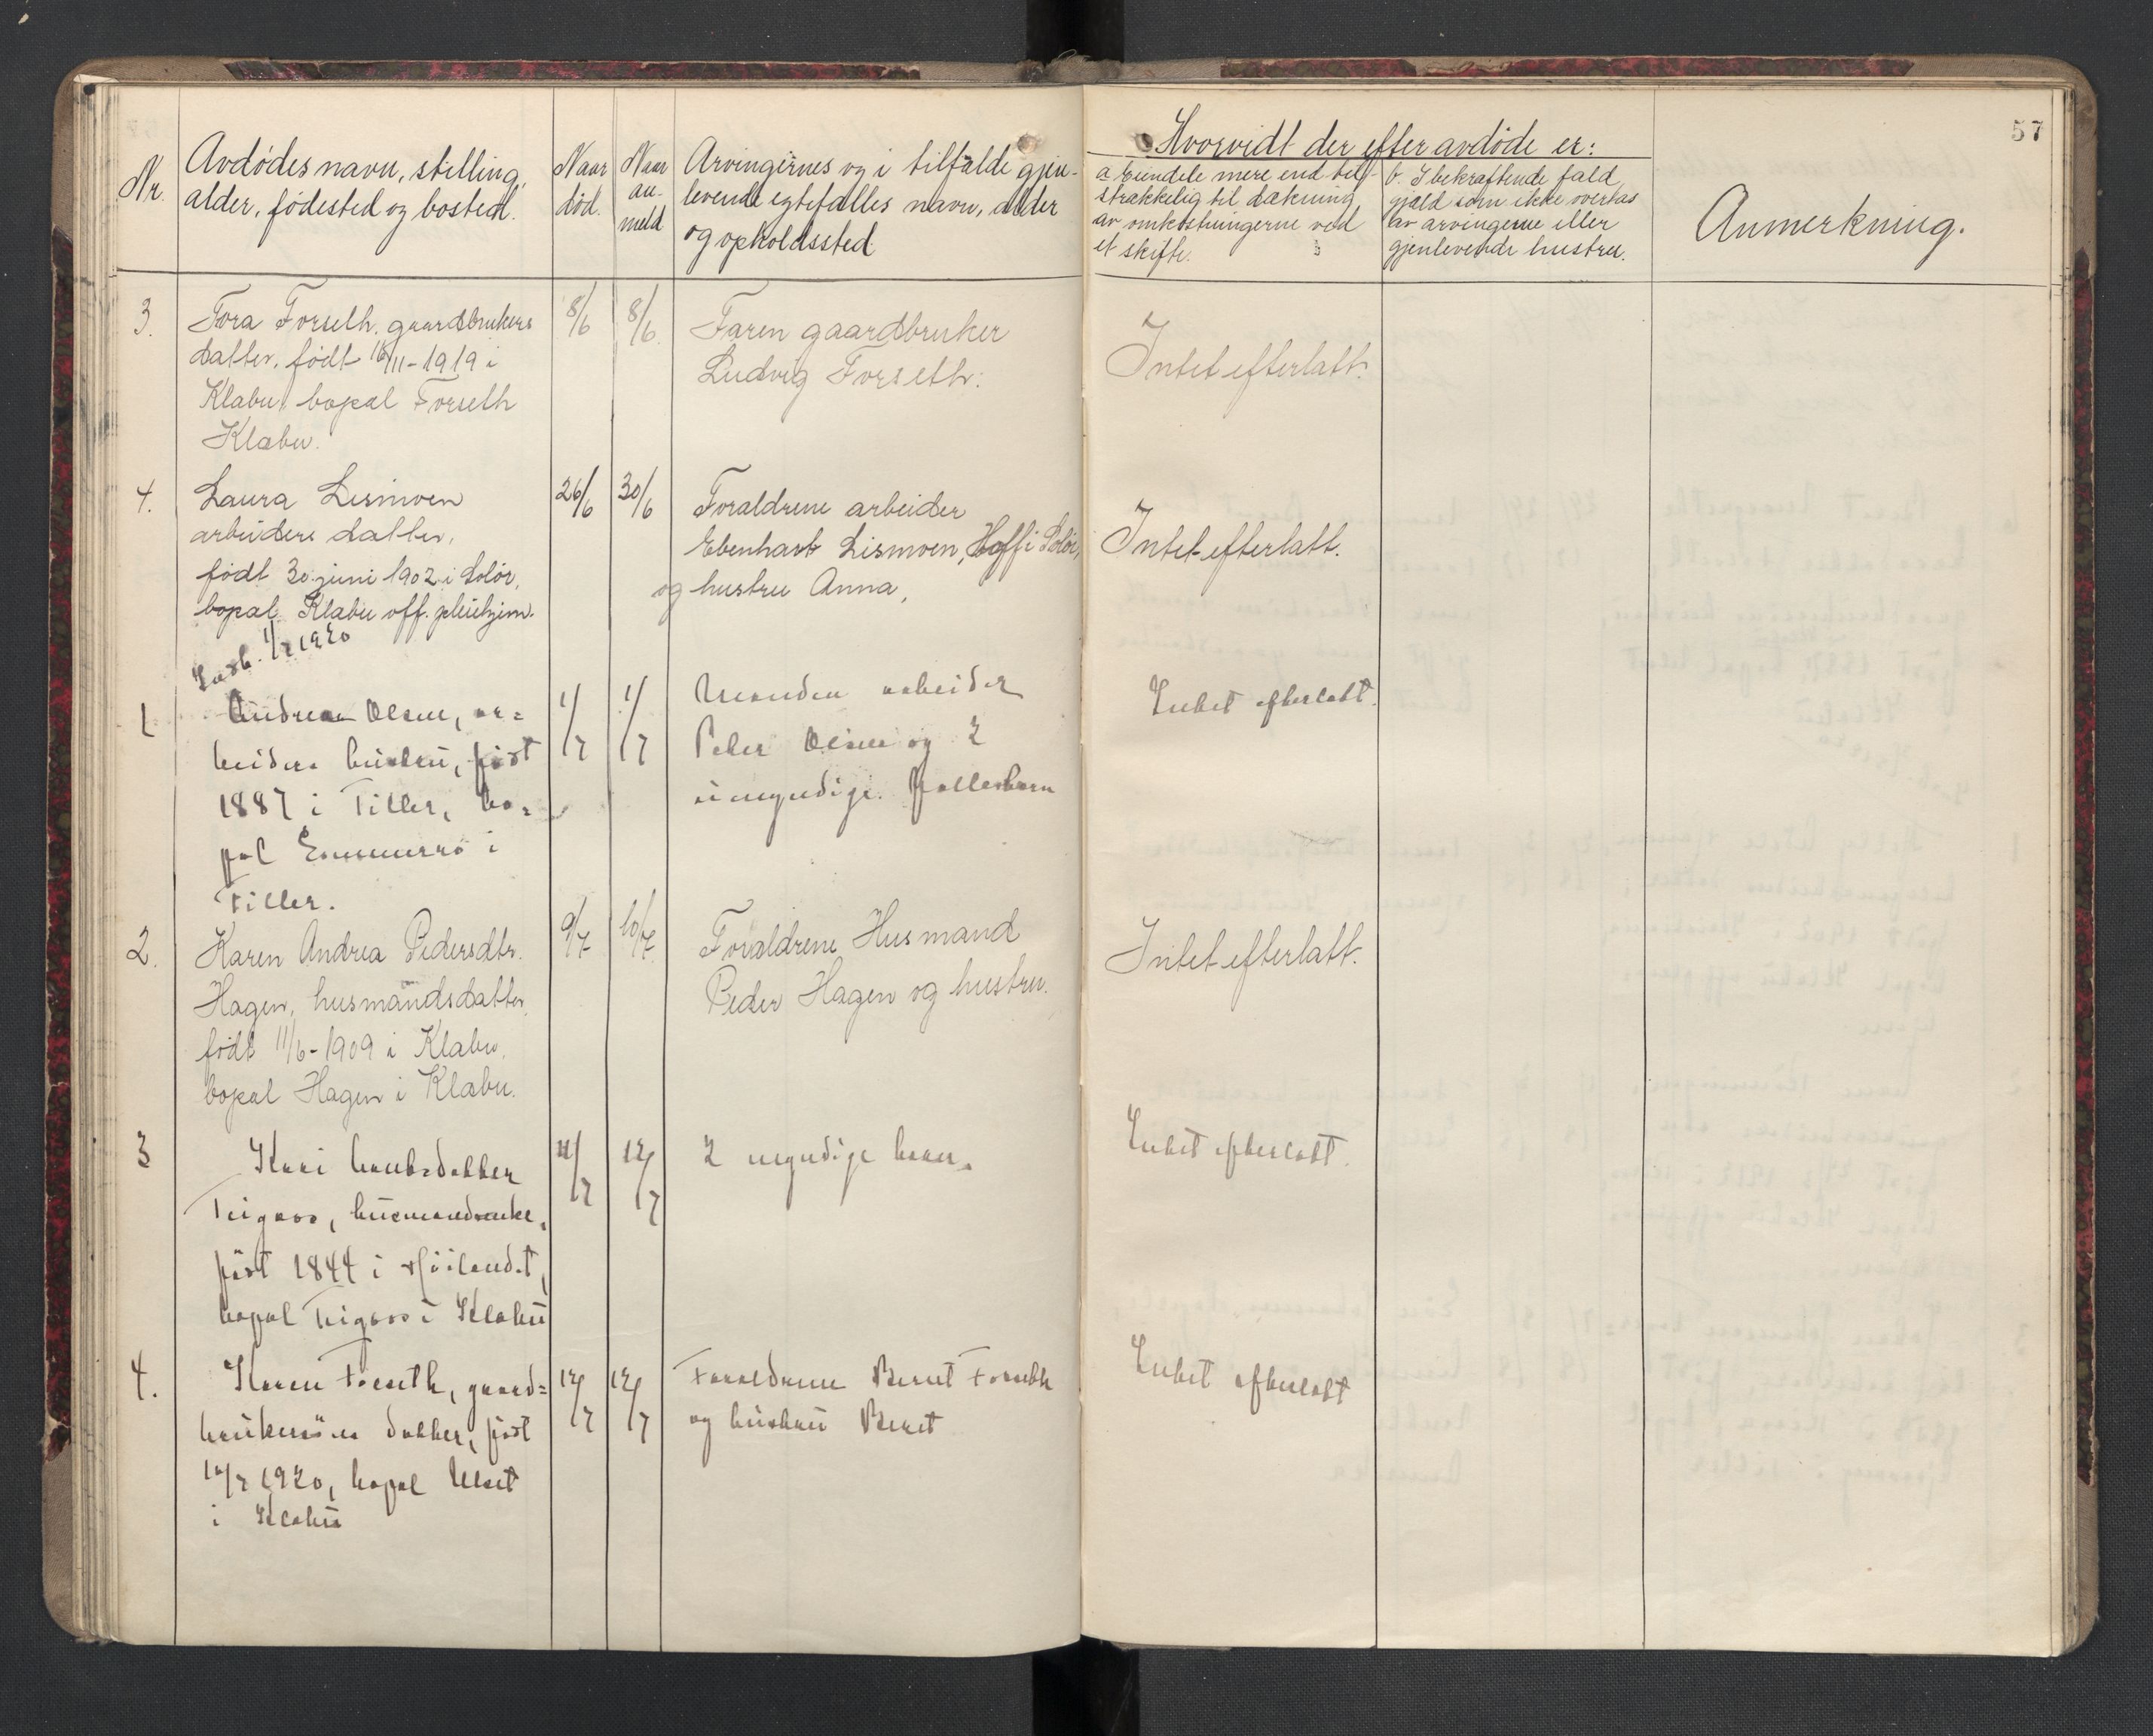 57
Nr.
Avdødes navn, stilling,
alder, fødested og bosted.
Naar
død.
Naar
an-
meld
Arvingernes og i tilfælde gjen-
levende egtefælles navn, alder
og opholdssted
Hvorvidt der efter avdøde er:
a Eiendele mere end til-
strækkelig til dækning
av omkostningerne ved
et skifte.
b. I bekræftende fald
gjæld som ikke overtas
av arvingerne eller
gjenlevende hustru.
Anmerkning.
3.
Tora Forseth, gaardbrukers
datter, født 16/11-1919 i
Klæbu, bopæl Forseth
Klæbu.
8/6
8/6.
Faren gaardbruker
Ludvig Forseth.
Intet efterlatt.
4.
Laura Lismoen
arbeiders datter,
født 30 juni 1902 i Solør,
bopæl Klæbu off. pleiehjem.
26/6
30/6
Forældrene arbeider
Ebenhart Lismoen, Hoff i Solør,
og hustru Anna,
Intet efterlatt.
Indb. 1/7 1920
1
Andrea Olsen, ar-
beiders hustru, født
1887 i Tiller, bo-
pæl
i
Tiller.
1/7
1/7
Manden arbeider
Peder Olsen og 2
umyndige fællesbarn
Intet efterlatt.
2.
Karen Andrea Pedersdtr.
Hagen, husmandsdatter,
født 11/6-1909 i Klæbu.
bopæl Hagen i Klæbu.
9/7
10/7.
Forældrene Husmand
Peder Hagen og hustru.
Intet efterlatt.
3
Kari
Teigaas, husmandsenke,
født 1844 i
bopæl Teigaas i Klæbu
11/7
12/7
2 myndige barn.
Intet efterlatt.
4.
Karen Forseth, gaard-
brukersøns datter, født
1920, bopæl Ulset
i Klæbu
12/7
12/7
Forældrene Bernt Forseth
og hustru Beret
Intet efterlatt